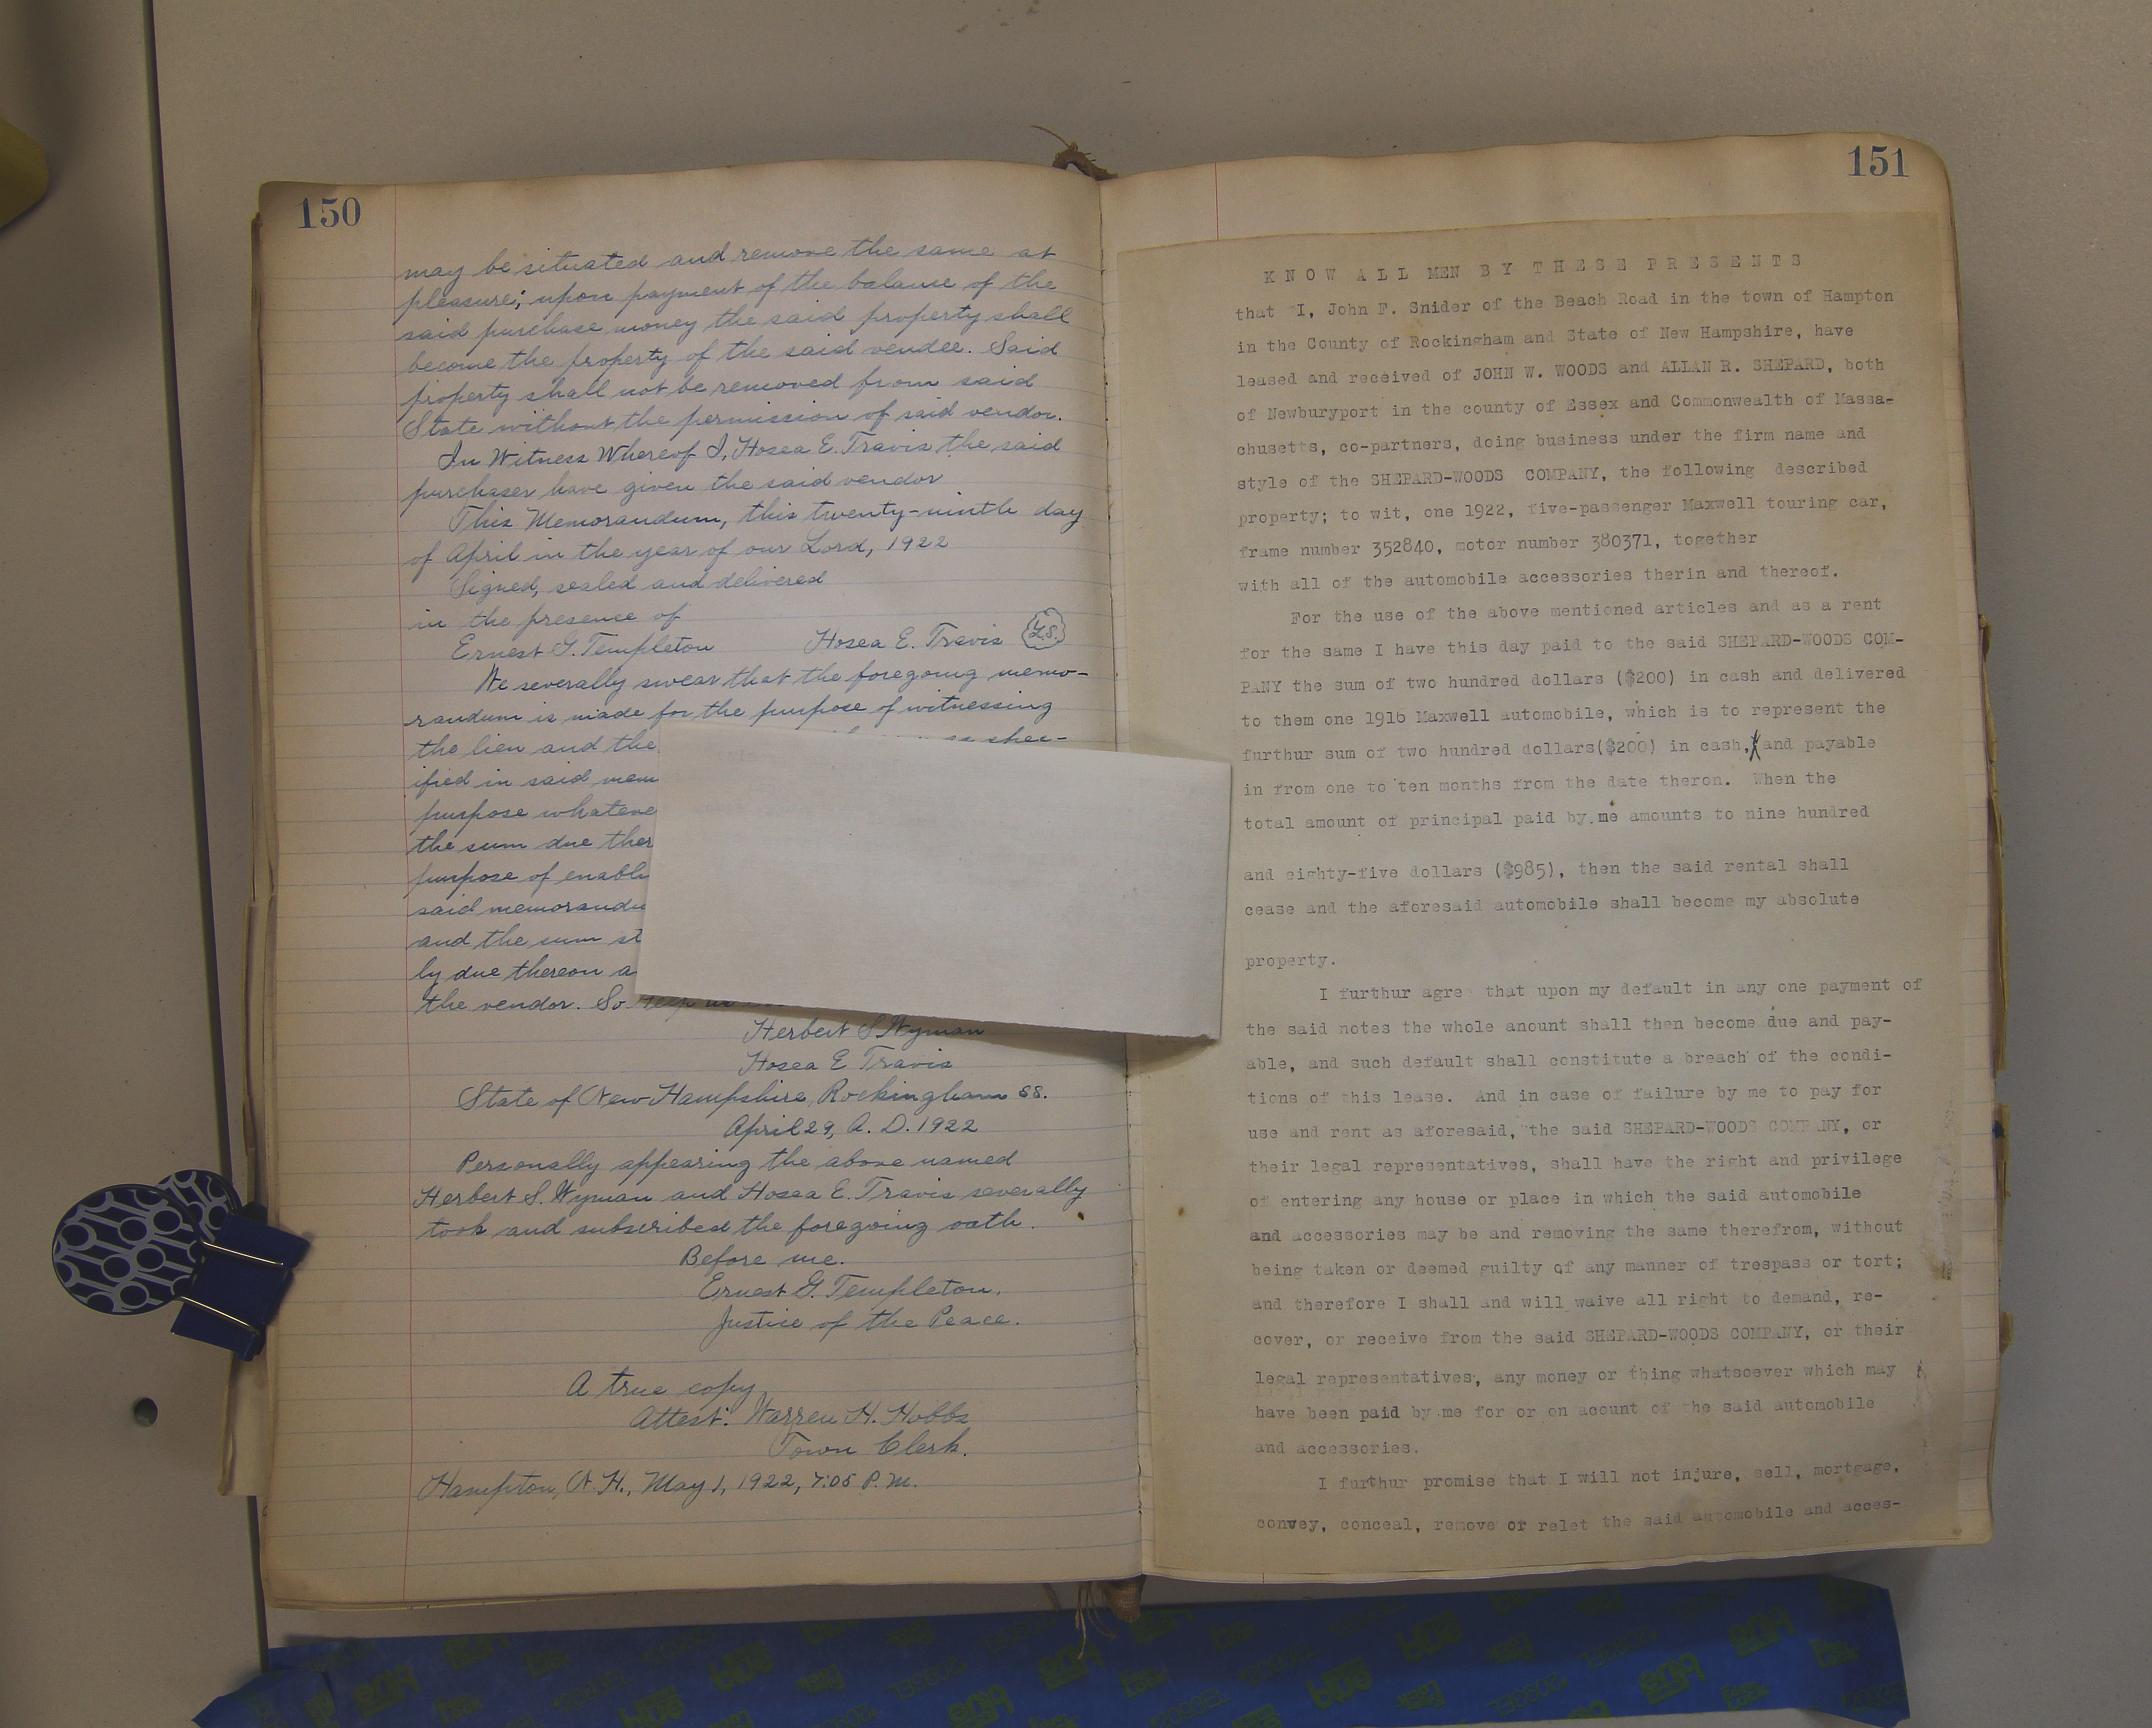 150
may be situated and remove the same at
pleasure; upon payment of the balance of the
said purchase money the said property shall
become the property of the said vendee. Said
property shall not be removed from said
State without the permission of said vendor.
In Witness Whereof I, Hosea E. Travis the said
purchaser have given the said vendor
This Memorandum, this twenty-ninth day
of April in the year of our Lord, 1922
Signed, sealed and delivered
in the presence of
Ernest G. Templeton Hosea E. Travis L.S.
We severally swear that the foregoing memo-
randum is made for the purpose of witnessing
the lien and the as spec-
ified in said mem
purpose whateve
the sum due ther
purpose of enabli
said memorandu
and the sum st
ly due thereon a
the vendor. So help us
Herbert S. Wyman
Hosea E Travis
State of New Hampshire, Rockingham SS.
April 29, A. D. 1922
Personally appearing the above named
Herbert S. Wyman and Hosea E. Travis severally
took and subscribed the foregoing oath.
Before me.
Ernest G. Templeton.
Justice of the Peace.
A true copy
Attest: Warren H. Hobbs
Town Clerk.
Hampton, N. H., May 1, 1922, 7:05 P. M.
151
KNOW ALL MEN BY THESE PRESENTS
that I, John F. Snider of the Beach Road in the town of Hampton
in the County of Rockingham and State of New Hampshire, have
leased and received of JOHN W. WOODS and ALLAN R. SHEPARD, both
of Newburyport in the county of Essex and Commonwealth of Massa-
chusetts, co-partners, doing business under the firm name and
style of the SHEPARD-WOODS COMPANY, the following described
property; to wit, one 1922, five-passenger Maxwell touring car,
frame number 352840, motor number 380371, together
with all of the automobile accessories therin and thereof.
For the use of the above mentioned articles and as a rent
for the same I have this day paid to the said SHEPARD-WOODS COM-
PANY the sum of two hundred dollars ($200) in cash and delivered
to them one 1916 Maxwell automobile, which is to represent the
furthur sum of two hundred dollars($200) in cash, and payable
in from one to ten months from the date theron. When the
total amount of principal paid by me amounts to nine hundred
and eighty-five dollars ($985), then the said rental shall
cease and the aforesaid automobile shall become my absolute
property.
I furthur agre that upon my default in any one payment of
the said notes the whole anount shall then become due and pay-
able, and such default shall constitute a breach of the condi-
tions of this lease. And in case of failure by me to pay for
use and rent as aforesaid, the said SHEPARD-WOODS COMPANY, or
their legal representatives, shall have the right and privilege
of entering any house or place in which the said automobile
and accessories may be and removing the same therefrom, without
being taken or deemed guilty of any manner of trespass or tort;
and therefore I shall and will waive all right to demand, re-
cover, or receive from the said SHEPARD-WOODS COMPANY, or their
legal representatives, any money or thing whatsoever which may
have been paid by me for or on acount of the said automobile
and accessories.
I furthur promise that I will not injure, sell, mortgage,
convey, conceal, remove or relet the said automobile and acces-